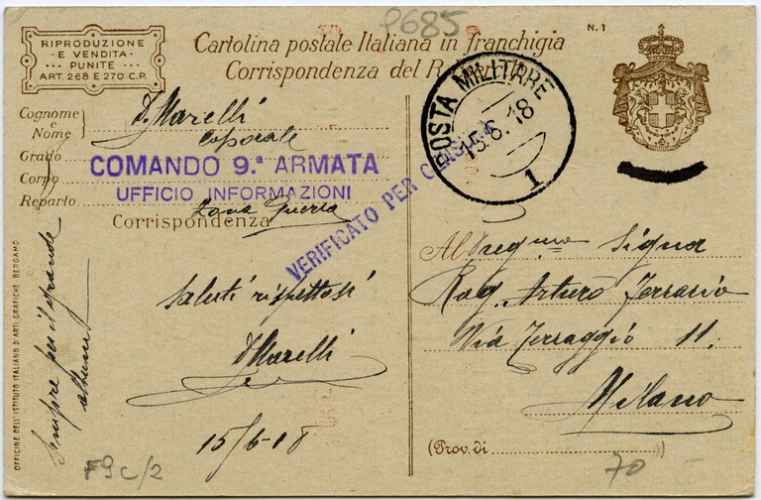 9685
N. 1
RIPRODUZIONE
E VENDITA
PUNITE
ART. 268 E 270 C.P.
Cartolina postale Italiana in franchigia
Corrispondenza del R.
POSTA MILITARE
15.6.18
1
Cognome
e
Nome
Marelli
Grado
caporale
Corpo
COMANDO 9.ª ARMATA
UFFICIO INFORMAZIONI
Reparto
Zona Guerra
VERIFICATO PER CENSURA
Corrispondenza
Saluti rispettosi
Marelli
15/6-18
Sempre per il grande
OFFICINE DELL'ISTITUTO ITALIANO D'ARTI GRAFICHE, BERGAMO
F9C/2
Al
Rag. Arturo Ferrario
Via Terraggio 11.
Milano
(Prov. di
70